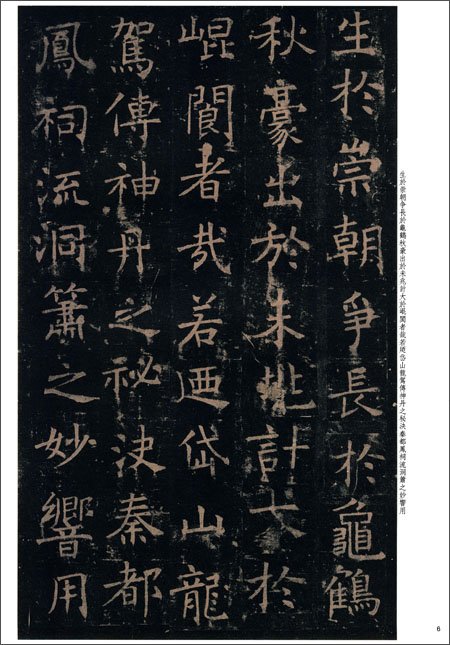 生於崇朝爭長於龜鶴秋豪出於未兆計大於崐閬者哉若迺岱山龍駕傳神丹之秘決秦都鳳祠流洞簫之妙響用
生於崇朝爭長於龜鶴
秋豪出於未兆計大於
崐閬者哉若迺岱山龍
駕傳神丹之秘決秦都
鳳祠流洞簫之妙響用
6